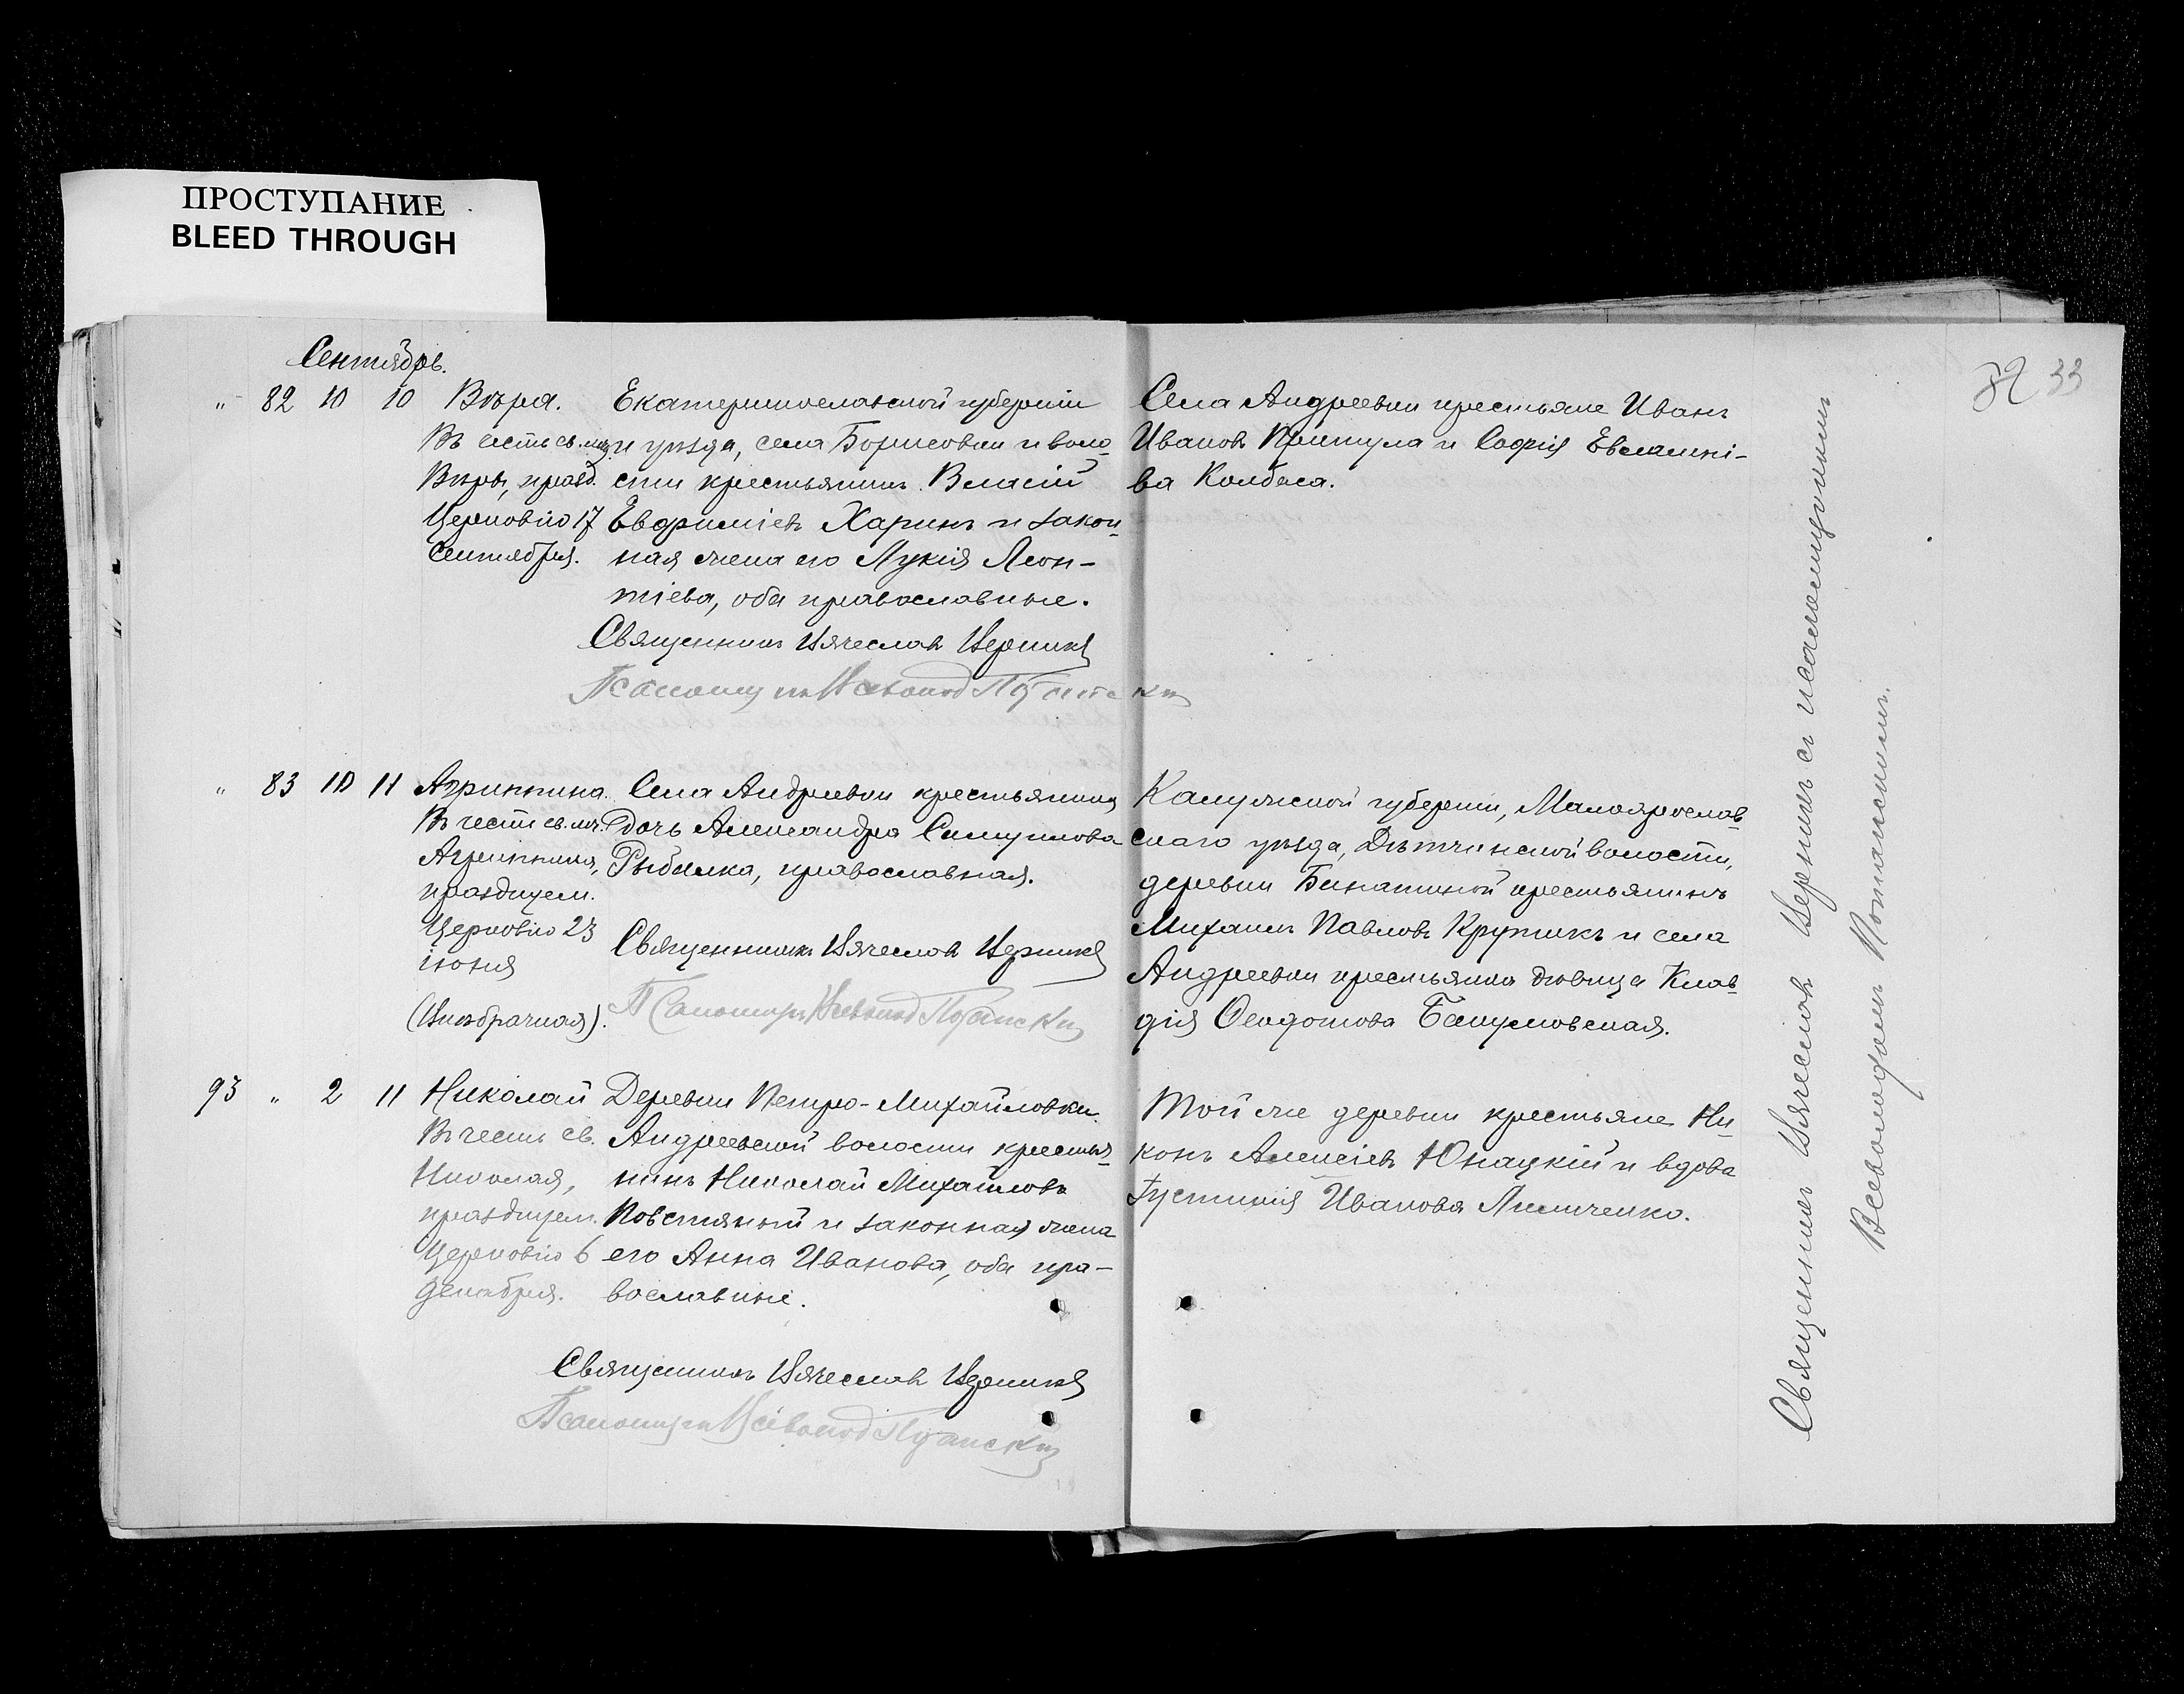 ПРОСТУПАНИЕ
BLEED THROUGH
32 33
Сентябрь.
" 82 10 10 Вѣра.
Въ честь св. муч.
Вѣры, празд.
Церковію 17
Сентября.
Екатеринославской губерніи
и уѣзда, села Борисовки и воло-
сти крестьянинъ Власій
Евфиміевъ Харинъ и закон-
ная жена его Лукія Леон-
тіева, оба православные.
Священникъ Вячеславъ Церинъ
Псаломщикъ Всеволод
Села Андреевки крестьяне Иванъ
Ивановъ Притула и Софія Евлампі-
ва Колбаса.
" 83 10 11 Агриппина.
Въ честь св. муч.
Агриппины,
празднуем.
Церковію 23
іюня
(Внѣбрачная).
Села Андреевки крестьянина
дочь Александра Самуилова
Рыбалка, православная.
Священникъ Вячеславъ Церинъ
Псаломщикъ Всеволод
Калужской губерніи, Малоярослав-
скаго уѣзда, Дѣтчинской волости,
деревни крестьянинъ
Михаилъ Павловъ Крутикъ и села
Андреевки крестьянка дѣвица Клав-
дія Ѳеодотова
93 " 2 11 Николай
Въ честь св.
Николая,
празднуем.
Церковію 6
декабря.
Деревни Петро-Михайловки
Андреевской волости крестья-
нинъ Николай Михайловъ
Повстяный и законная жена
его Анна Иванова, оба пра-
вославные.
Священникъ Вячеславъ Церинъ
Псаломщикъ Всеволод
Той же деревни крестьяне Ни-
конъ Алексіевъ Юнацкій и вдова
Іустинія Иванова
Священникъ Вячеславъ съ псаломщикомъ
Всеволодомъ